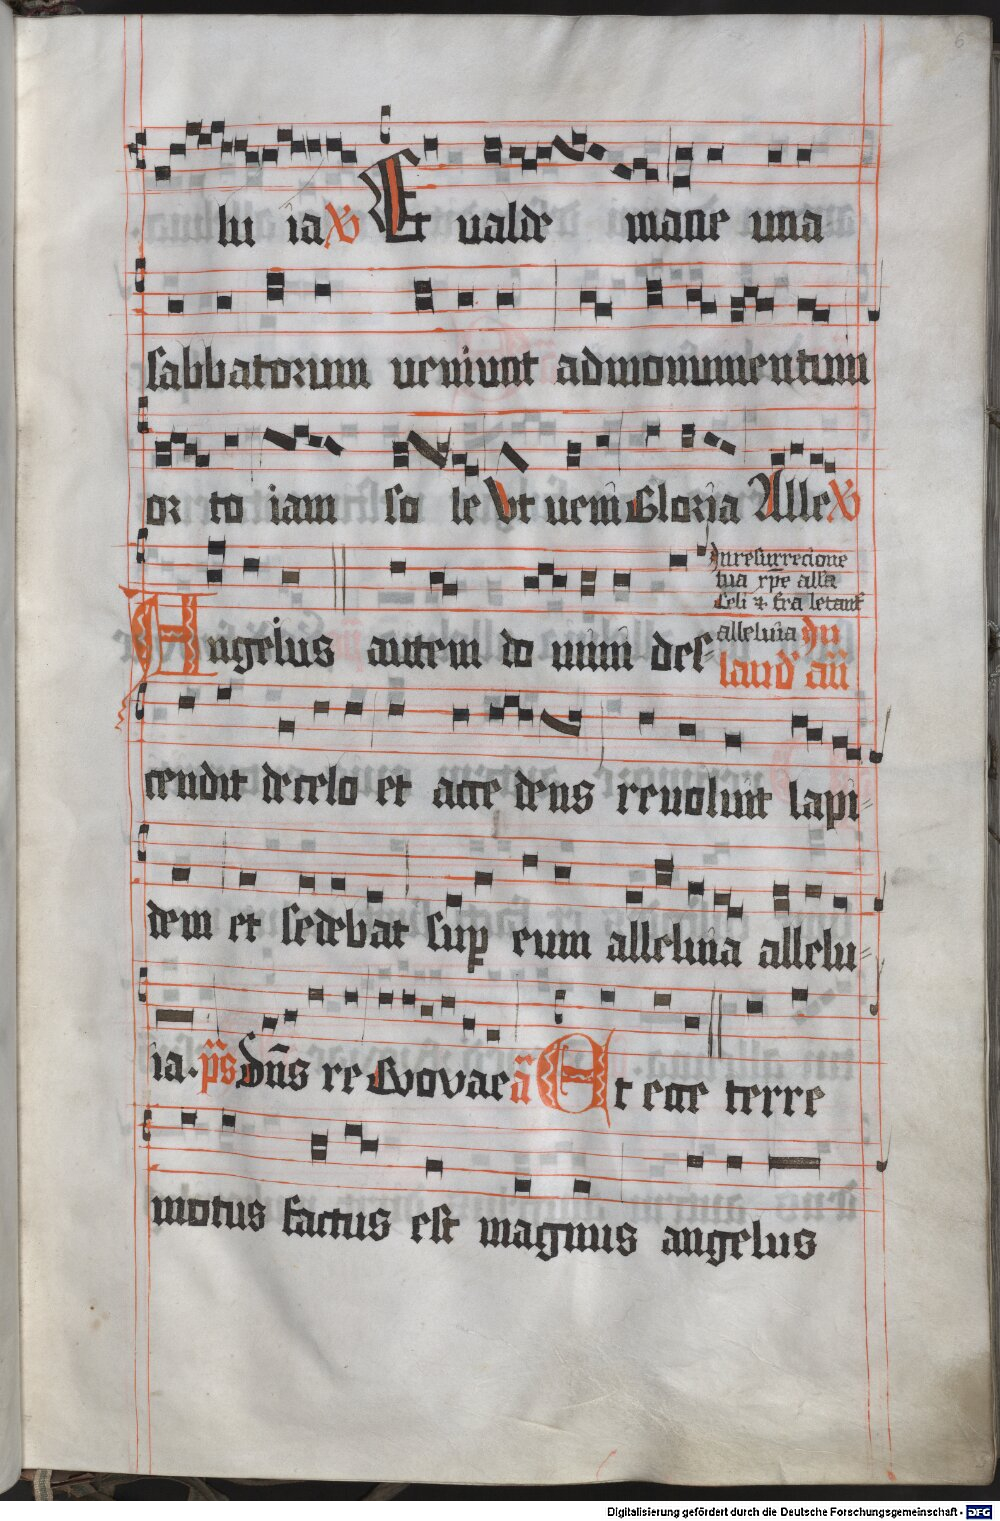 6
lu ia xͮ Et ualde mane una
sabbatorum ueniunt admonumentum
or to iam so le Vt uem Gloria Alle xͮ
Inresurrectione
tua xp̄e alla
Celi ⁊ t̄ra letant᷑
Angelus autem do mini def⸗
alleluia In
laud' an̄
cendit decelo et acce dens reuoluit lapi⸗
dem et sedebat sup̱ eum alleluia allelu⸗
ia. p̄s Dn̄s re Evovae ā Et ecce terre
motus factus est magnus angelus
Digitalisierung gefördert durch die Deutsche Forschungsgemeinschaft - DFG